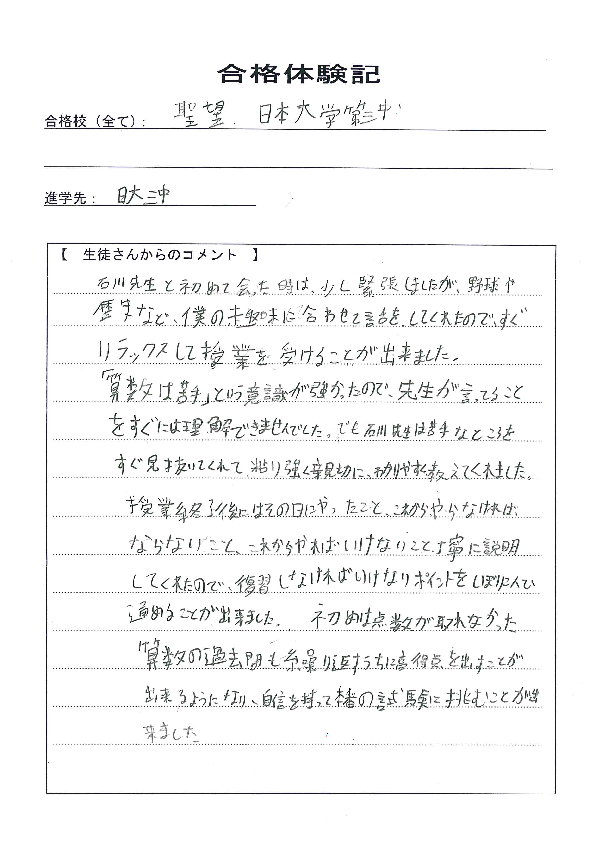 合格体験記
合格校（全て）： 聖望、日本大学第三中
進学先： 日大三中
【 生徒さんからのコメント 】
石川先生と初めて会った時は、少し緊張しましたが、野球や
歴史など、僕の趣味に合わせて話をしてくれたので、すぐ
リラックスして授業を受けることが出来ました。
「算数は苦手」という意識が強かったので、先生が言ってること
をすぐには理解できませんでした。でも石川先生は苦手なところを
すぐ見抜いてくれて、粘り強く親切に、わかりやすく教えてくれました。
授業終了後にはその日にやったこと、これからやらなければ
ならないこと、これからやればいけないこと丁寧に説明
してくれたので、復習しなければいけないポイントをしぼり
進めることが出来ました。 初めは点数が取れなかった
算数の過去問も糸繰り返すうちに高得点を出すことが
出来るようになり、自信を持って本番の試験に挑むことが出
来ました